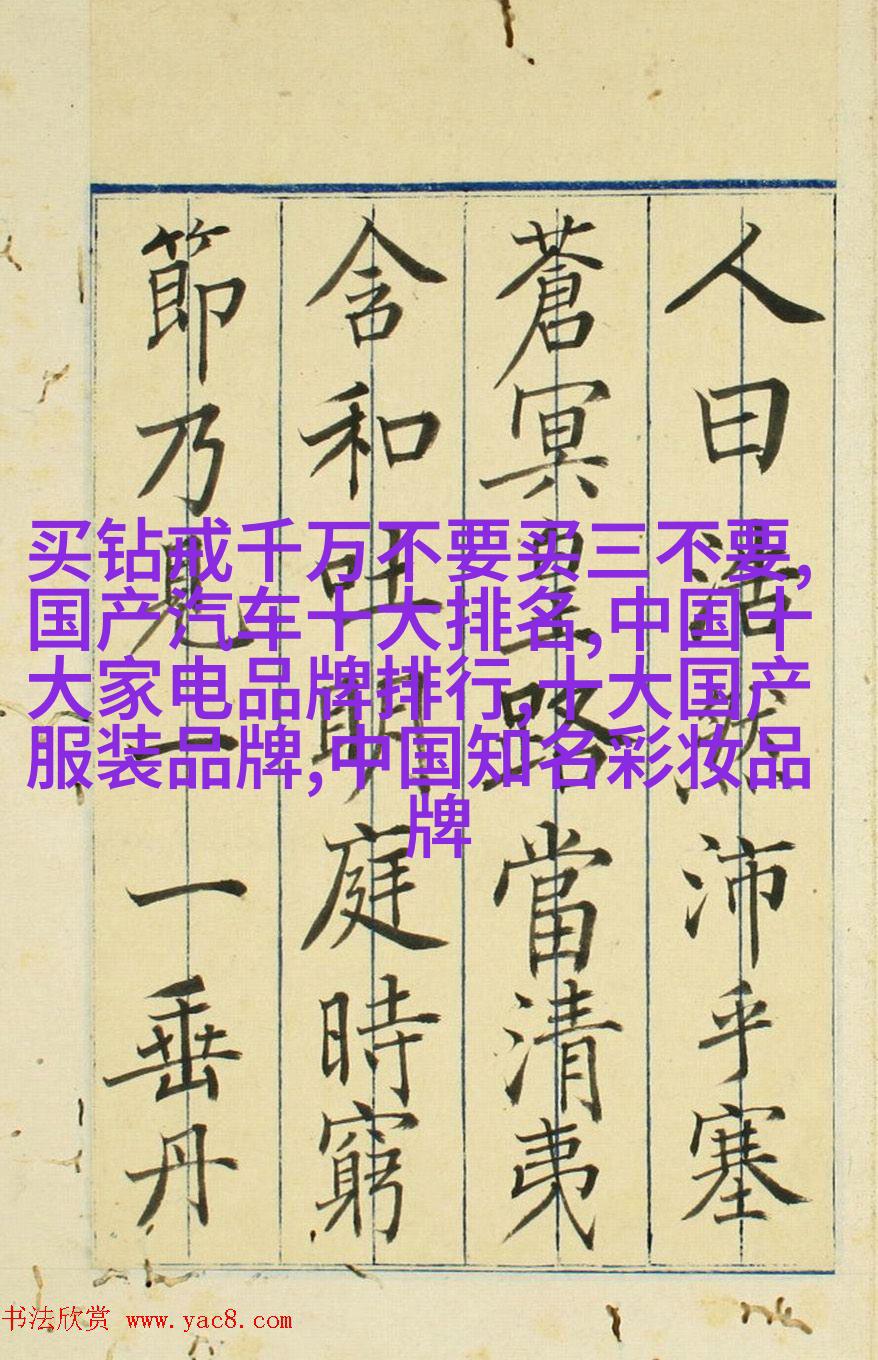 人曰浩然沛乎塞
蒼冥皇路當清夷
含和吐明庭時窮
節乃見一一垂丹
买钻戒千万不要买三不要,
国产汽车十大排名,中国十
大家电品牌排行,十大国产
服装品牌,中国知名彩妆品
牌
书法欣赏 www.yac8.com